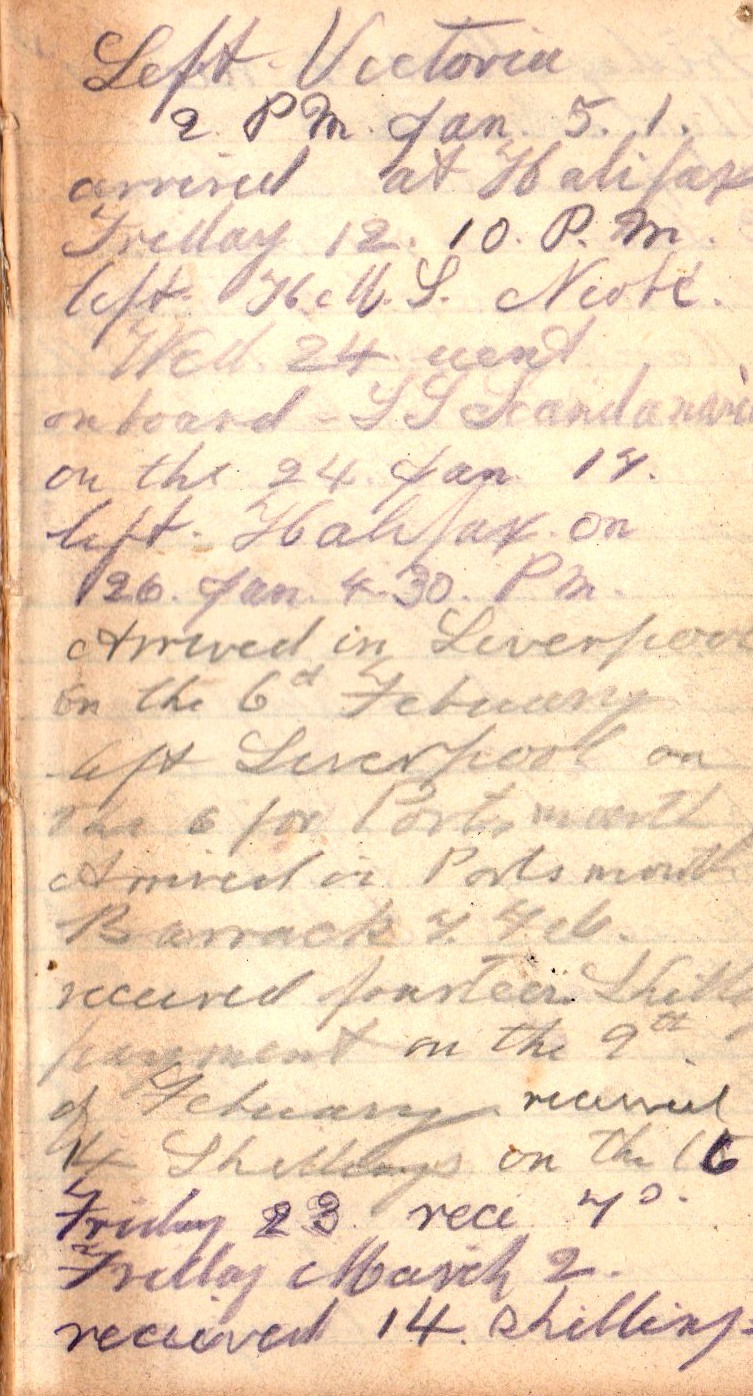 Left Victoria
2 P.M. Jan. 5. 1.
arrived at Halifax
Friday 12. 10. P. M.
left H.M.S. Niobe.
Wed. 24 went
onboard - SS Scandanavi
on the 24. Jan 17.
left. Halifax. on
26. Jan. 4-30. P m.
Arrived in Liverpoo
on the 6 Febuary
left Liverpool on
the 6 for Portsmouth
Arrived in Portsmouth
Barrack 7. Feb.
received fourteen Shilli
payment on the 9th
of Febuary received
14 Shillings on the 16
Friday 23 rece 7s.
Friday March 2.
received 14. shillings